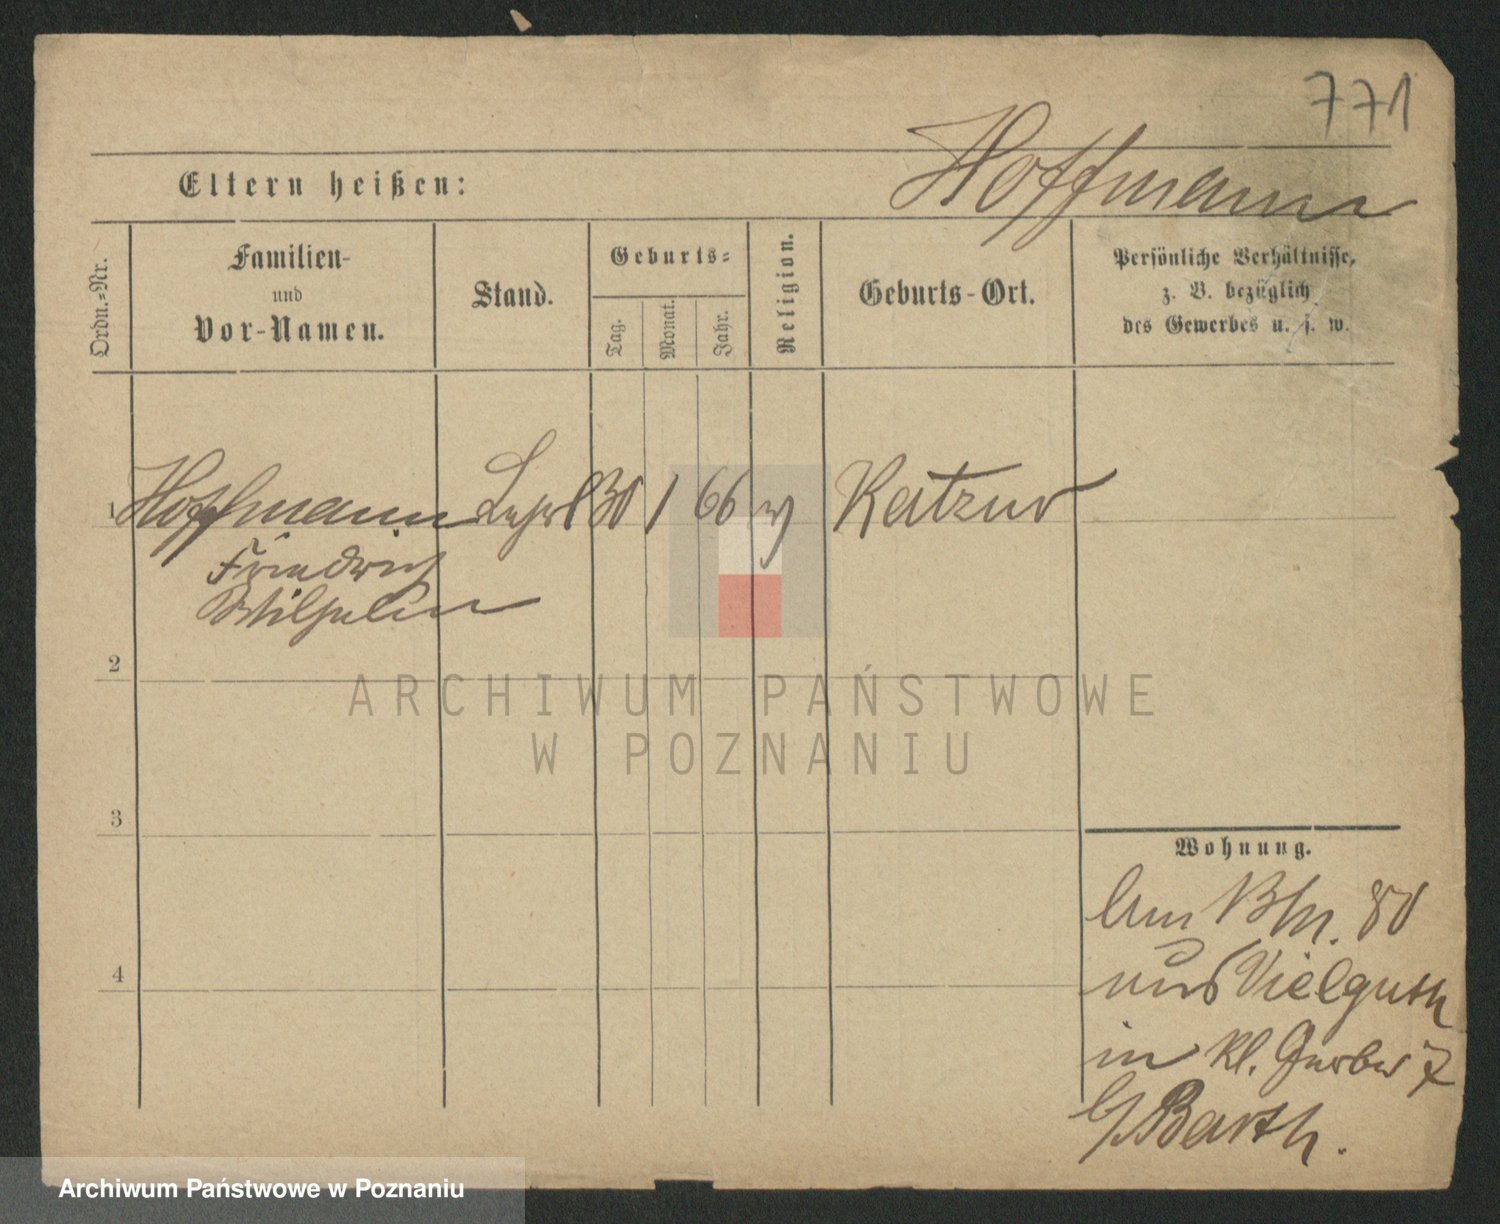 771
Hoffmann
Eltern heißen:
Ordn.-Nr.
Familien-
und
Vor-Namen.
Stand.
Geburts-
Tag.
Monat.
Jahr.
Religion.
Geburts-Ort.
Persönliche Verhältnisse,
z. B. bezüglich
des Gewerbes u. s. w.
1 Hoffmann 30 1 66 Katzur
Friedrich
Wilhelm
2
ARCHIWUM PAŃSTWOWE
W POZNANIU
3
4
Wohnung.
80
Vielguth
in kl. Gerber 7
Barth.
Archiwum Państwowe w Poznaniu